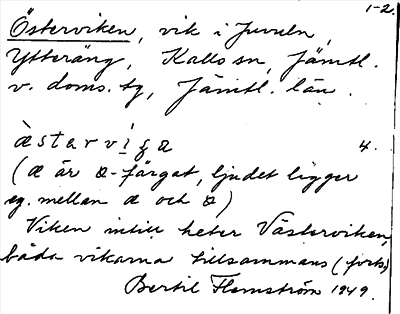 1-2.
Österviken, vik i Juveln,
Ytteräng, Kalls sn, Jämtl.
v. doms. tg, Jämtl. län.
àstarvìga 4.
(a är a-färgat, ljudet ligger
eg. mellan a och a)
Viken intill heter Västerviken,
båda vikarna tillsammans (forts.)
Bertil Flemström 1949.